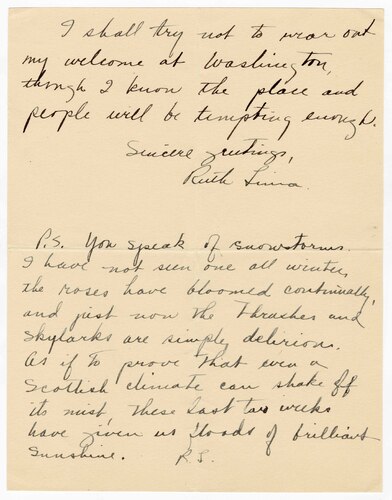 I shall try not to wear out
my welcome at Washington,
though I know the place and
people will be tempting enough.
Sincere greetings,
Ruth
P.S. You speak of snowstorms.
I have not seen one all winter,
the roses have bloomed continually,
and just now the thrushes and
skylarks are simply delirious.
As if to prove that even a
Scottish climate can shake off
its mist, these last two weeks
have given us floods of brilliant
sunshine. R.S.